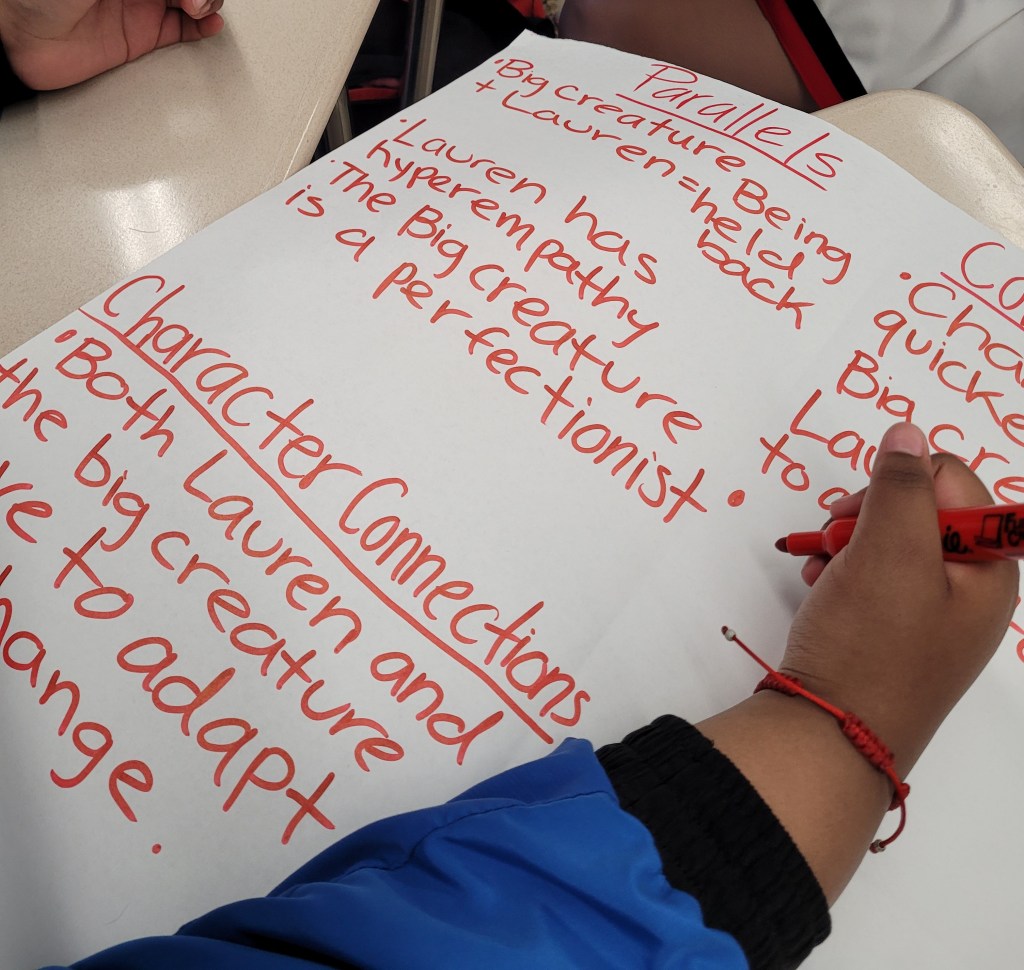 Parallels
•Big creature Being
+ Lauren = held
back
•Lauren has
hyperempathy
•The Big creature
is a perfectionist.
Character Connections
•Both Lauren and
the big creature
to adapt
Big cre